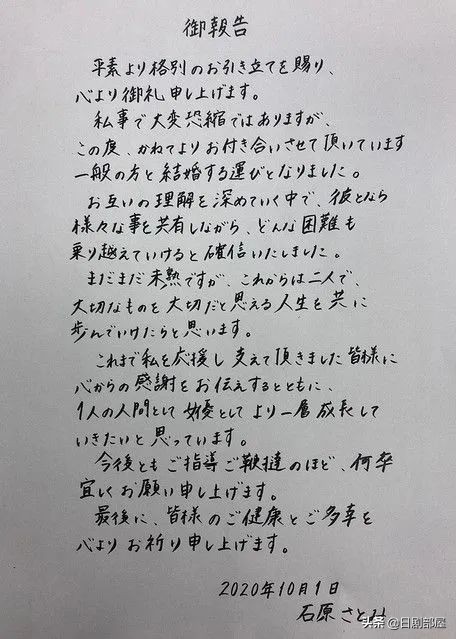 御報告
平素より格別のお引き立てを賜り、
心より御礼申し上げます。
私事で大変恐縮ではありますが、
この度、かねてよりお付き合いさせて頂いています
一般の方と結婚する運びとなりました。
お互いの理解を深めていく中で、彼となら
様々な事を共有しながら、どんな困難も
乗り越えていけると確信いたしました。
まだまだ未熟ですが、これからは二人で、
大切なものを大切だと思える人生を共に
歩んでいけたらと思います。
これまで私を応援し支えて頂きました皆様に
心からの感謝をお伝えするとともに、
1人の人間として女優としてより一層成長して
いきたいと思っています。
今後ともご指導ご鞭撻のほど、何卒
宜しくお願い申し上げます。
最後に、皆様のご健康とご多幸を
心よりお祈り申し上げます。
2020年10月1日
石原さとみ
头条 @日剧部屋